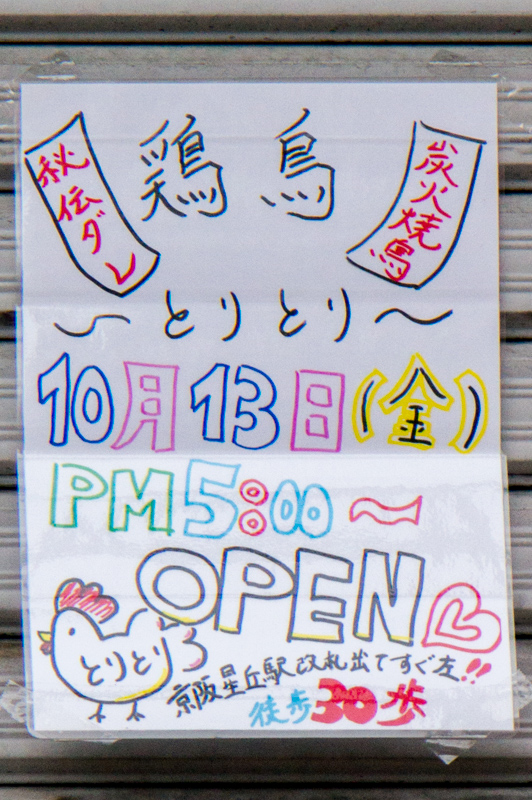 秘伝ダレ
鶏鳥
炭火焼鳥
〜とりとり〜
10月13日(金)
PM5:00〜
OPEN
とりとり
京阪星丘駅改札出てすぐ左!!
徒歩30歩